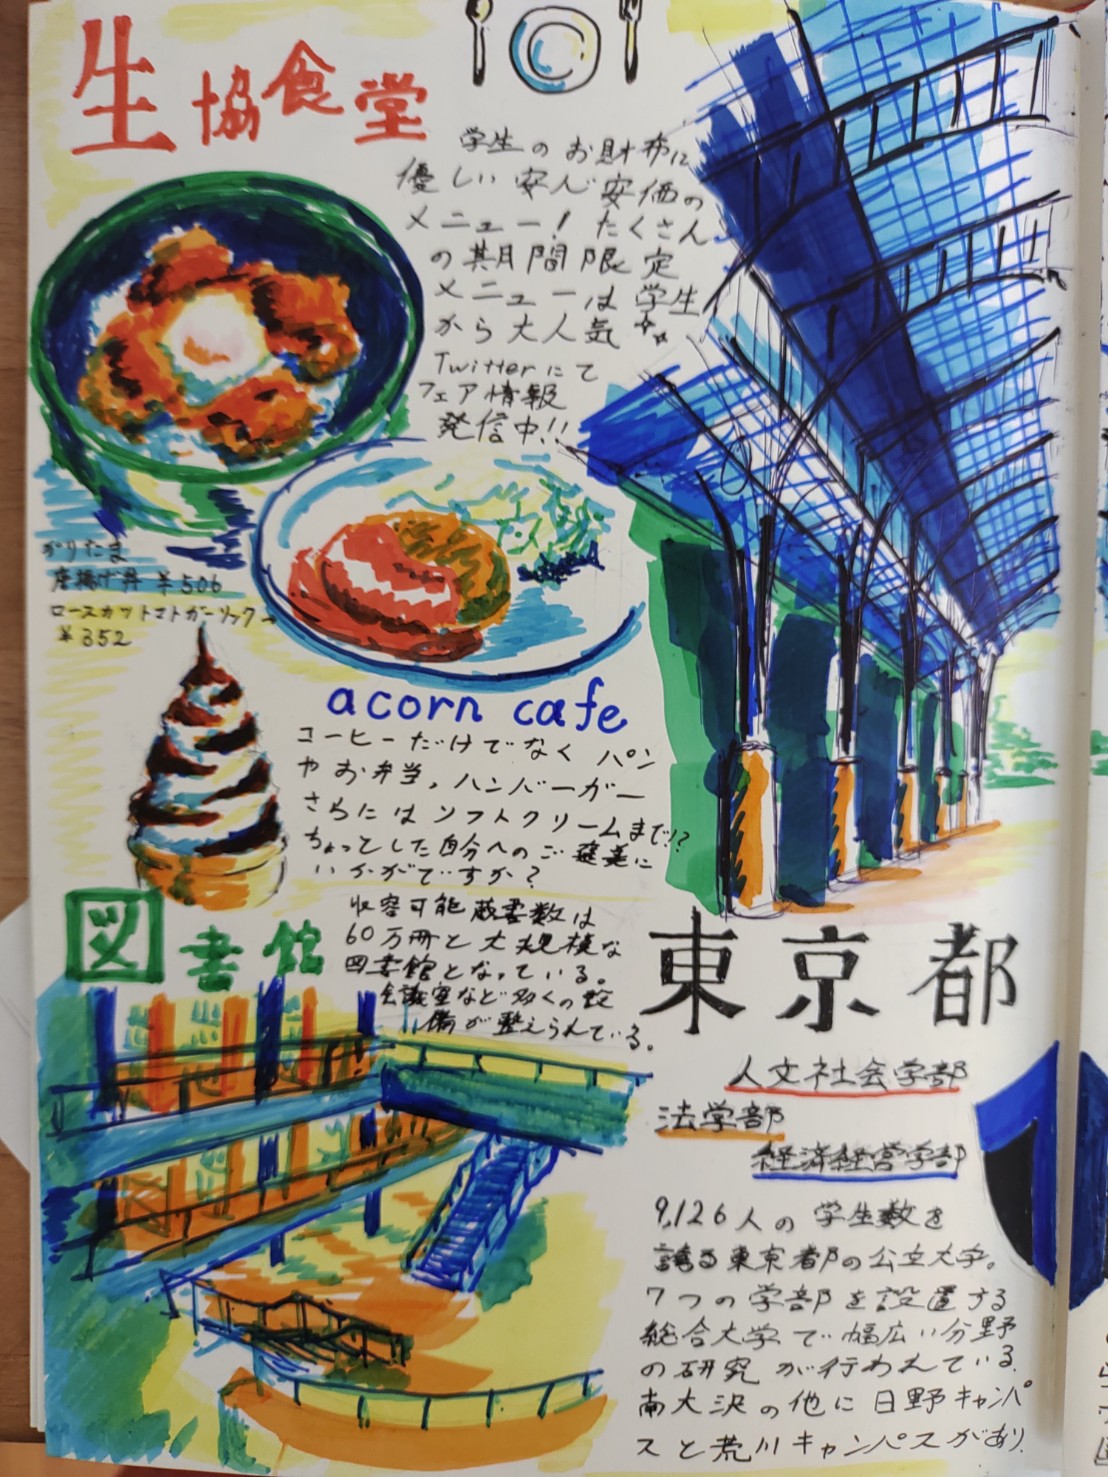 生協食堂
学生のお財布に
優しい安心安価の
メニュー！たくさん
の期間限定
メニューは学生
から大人気
Twitterにて
フェア情報
発信中!!
がりたま
唐揚げ丼 ¥506
ロースカツトマトガーリック→
¥352
acorn cafe
コーヒーだけでなくパン
やお弁当、ハンバーガー
さらにはソフトクリームまで!?
ちょっとした自分へのご褒美に
いかがですか？
図書館
収容可能蔵書数は
60万冊と大規模な
図書館となっている。
会議室など多くの設
備が整えられている。
東京都
人文社会学部
法学部
経済経営学部
9,126人の学生数を
誇る東京都の公立大学。
7つの学部を設置する
総合大学で幅広い分野
の研究が行われている。
南大沢の他に日野キャンパ
スと荒川キャンパスがあり、